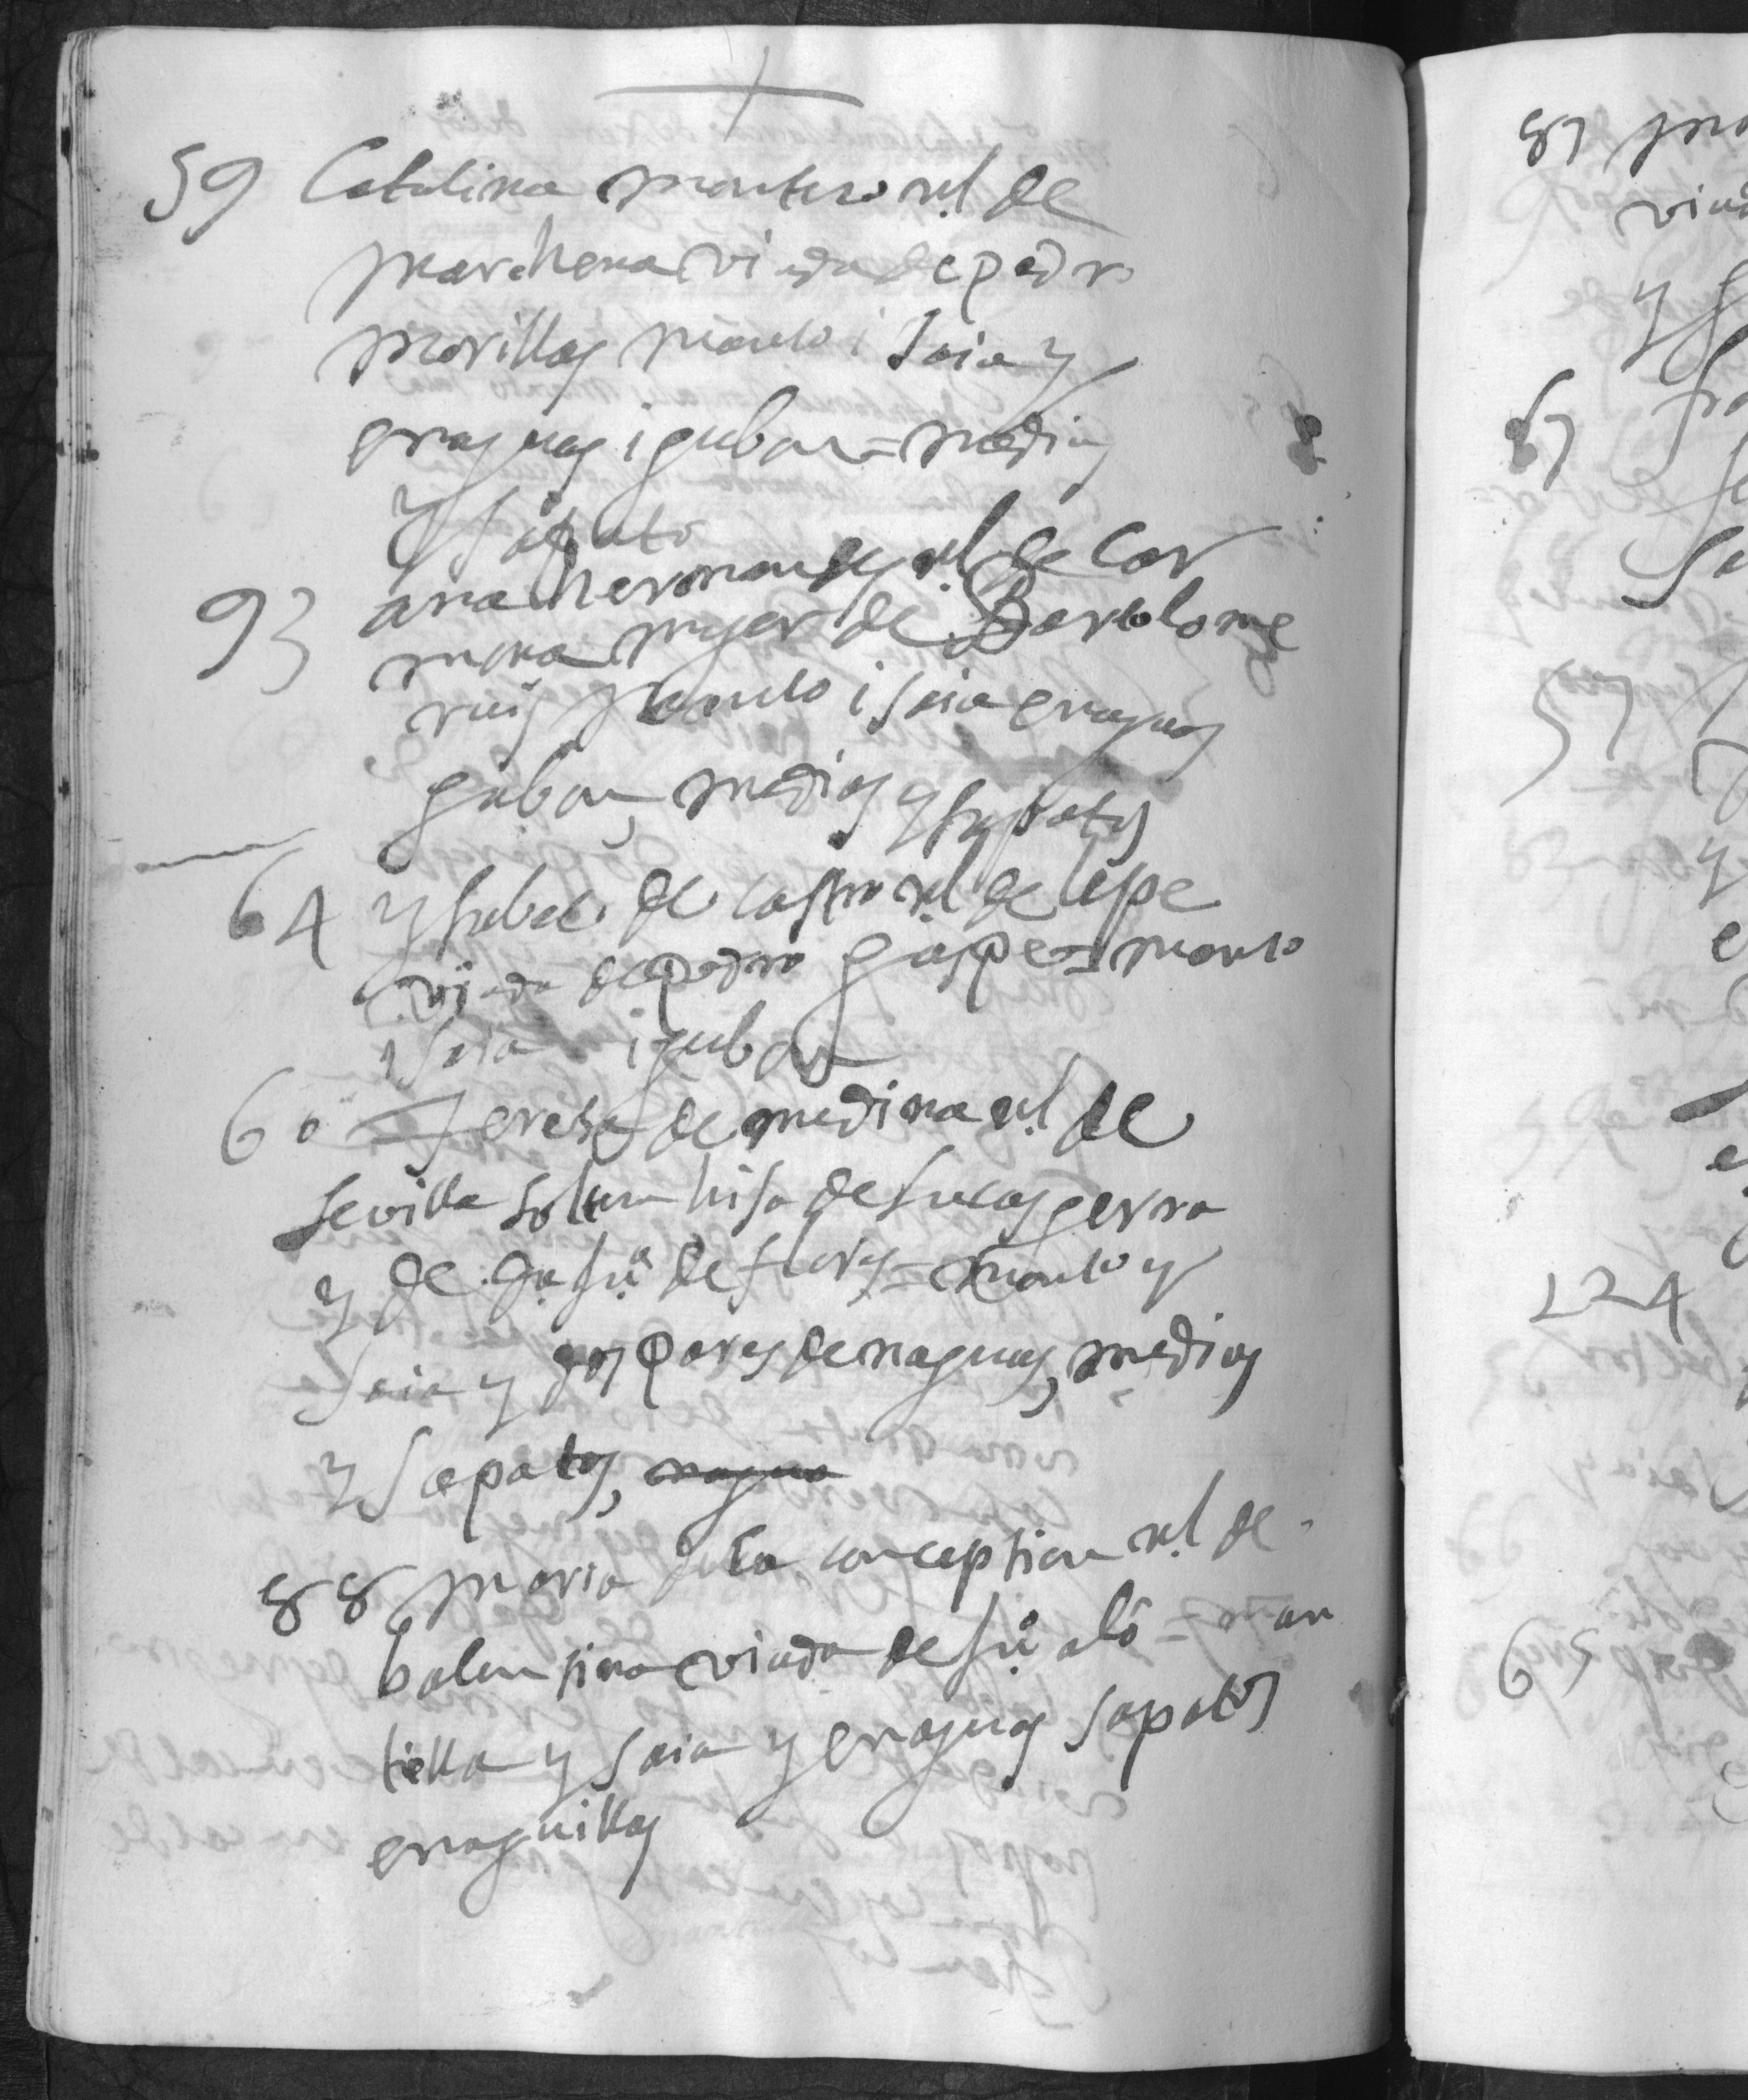 59 Catalina montero nl de
marchena viuda de pedro
morillas manto i saia y
enaguas i jubon = medias
y sapato
93 ana hernandes nl de Car
mona muger de Bartolome
ruis manto i saia enaguas
jubon, medias y sapatos
64 ysabel de castro nl de lepe
viuda de pedro gaspe = manto
i saia i jubon
60 Teresa de medina nl de
sevilla soltera hisa de lucas gerra
y de de flores = manto y
saia y dos pares de naguas, medias
y sapatos, nagua
88 maria de la conception nl de
balensina viuda de = man
tilla y saia y enaguas sapatos
enaguillas
87
viud
y
67
57
y
124
65